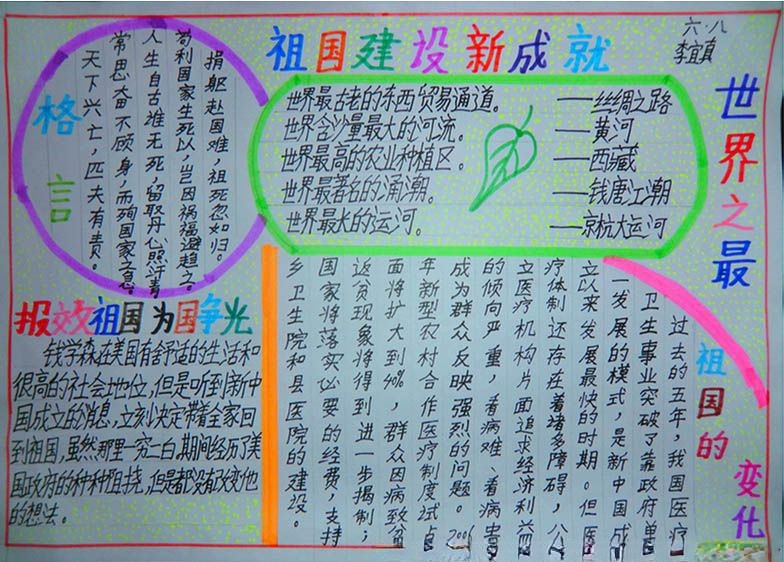 祖国建设新成就
六·八
李宜真
世界之最
世界最古老的东西贸易通道。——丝绸之路
世界含沙量最大的河流。——黄河
世界最高的农业种植区。——西藏
世界最著名的涌潮。——钱唐江潮
世界最长的运河。——京杭大运河
格言
捐躯赴国难，祖死忽如归。
苟利国家生死以，岂因祸福避趋之。
人生自古谁无死，留取丹心照汗青
常思奋不顾身，而殉国家之急。
天下兴亡，匹夫有责。
报效祖国为国争光
钱学森在美国有舒适的生活和
很高的社会地位，但是听到新中
国成立的消息，立刻决定带着全家回
到祖国，虽然那里一穷二白，期间经历了美
国政府的种种阻挠，但是都没有改变他
的想法。
祖国的变化
过去的五年，我国医疗
卫生事业突破了靠政府单
一发展的模式，是新中国成
立以来发展最快的时期。但医
疗体制还存在着诸多障碍，公
立医疗机构片面追求经济利益
的倾向严重，看病难、看病贵
成为群众反映强烈的问题。2006
年新型农村合作医疗制度试点
面将扩大到40%，群众因病致贫
返贫现象将得到进一步揭制；
国家将落实必要的经费，支持
乡卫生院和县医院的建设。